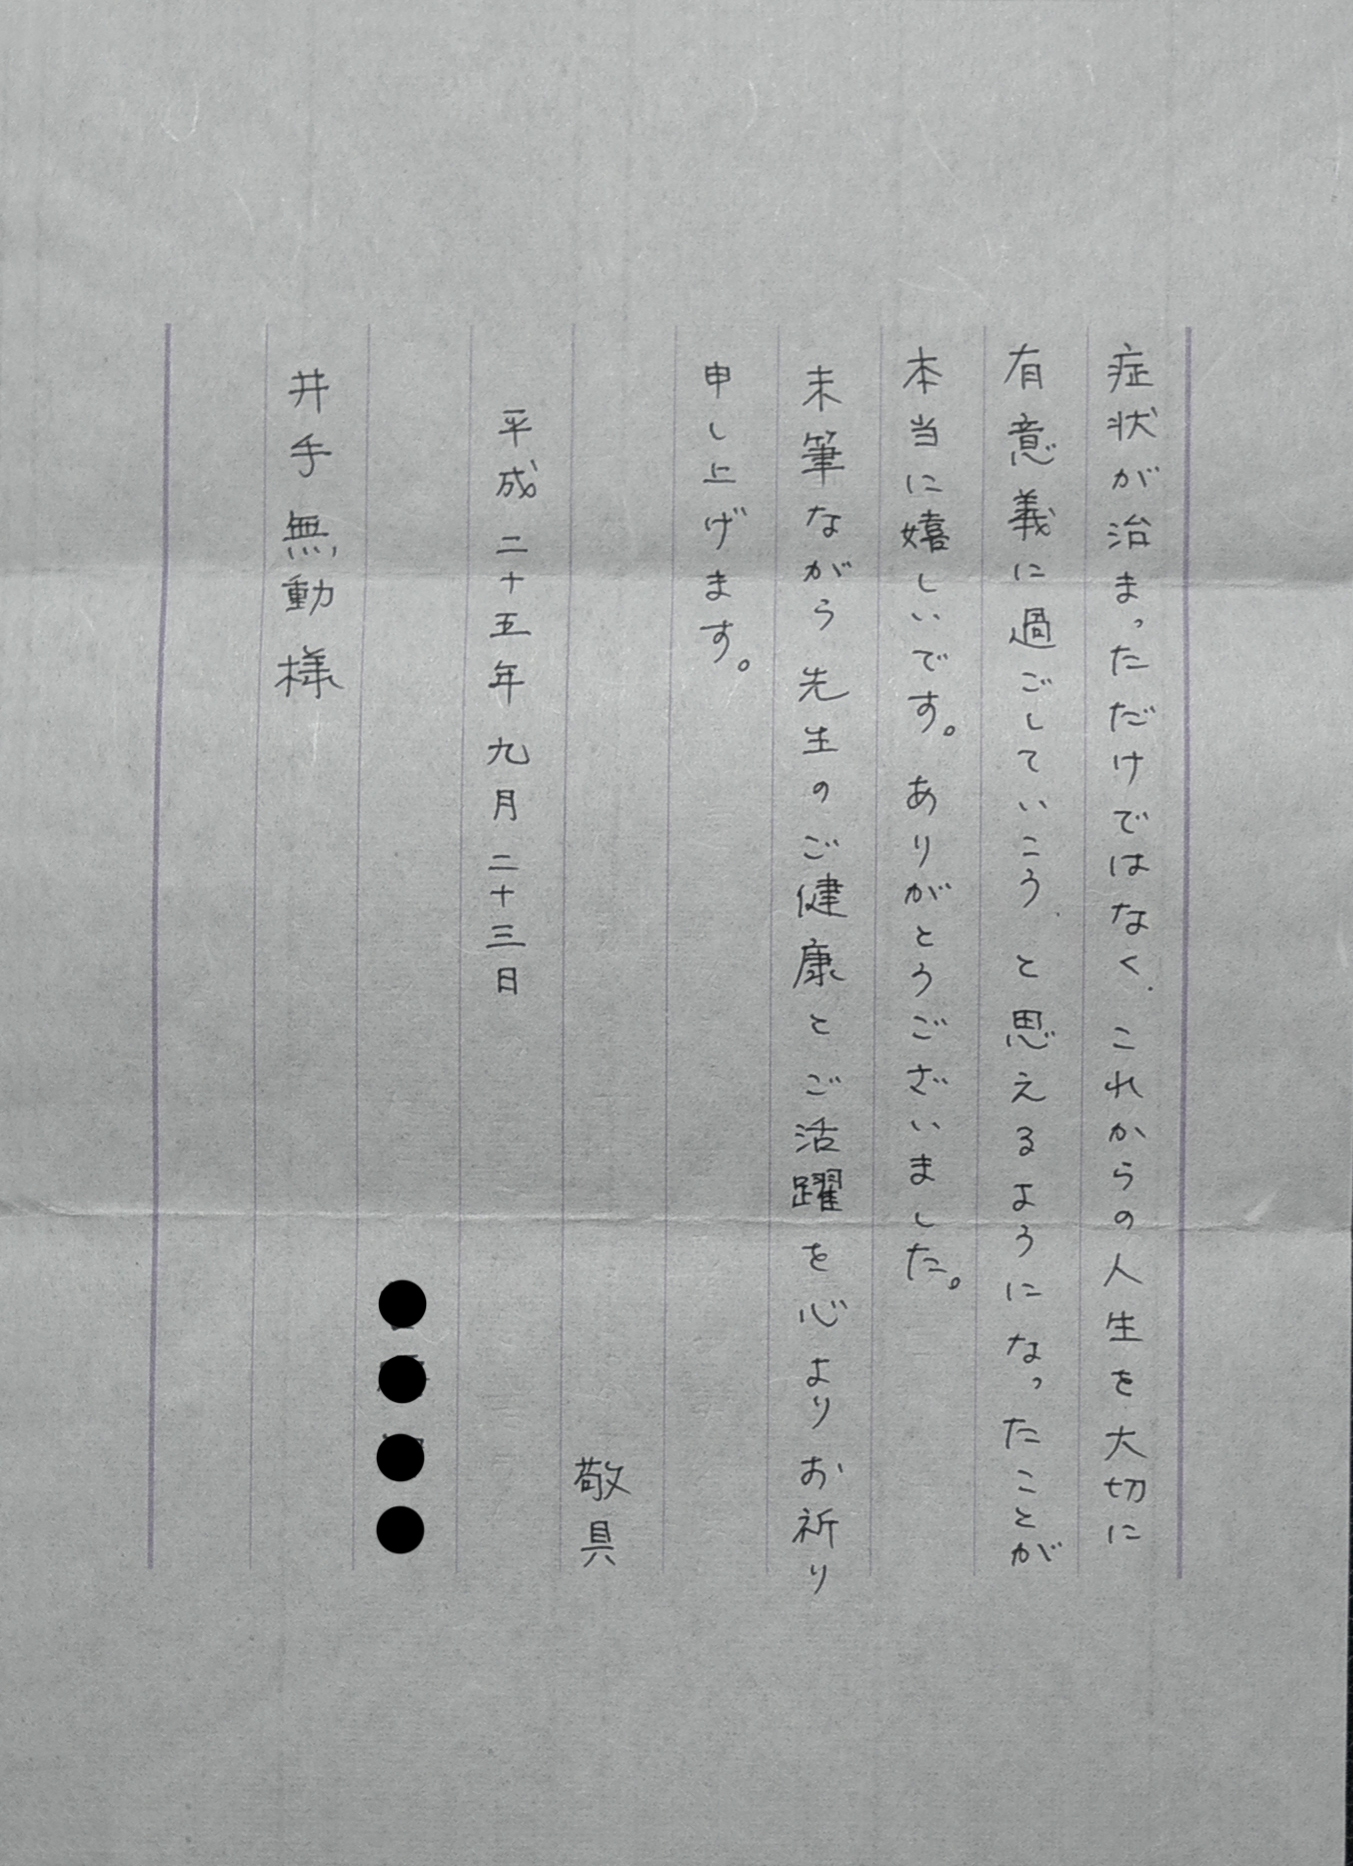 症状が治まっただけではなく、これからの人生を大切に
有意義に過ごしていこう、と思えるようになったことが
本当に嬉しいです。ありがとうございました。
末筆ながら先生のご健康とご活躍を心よりお祈り
申し上げます。
敬具
平成二十五年九月二十三日
井手無動様